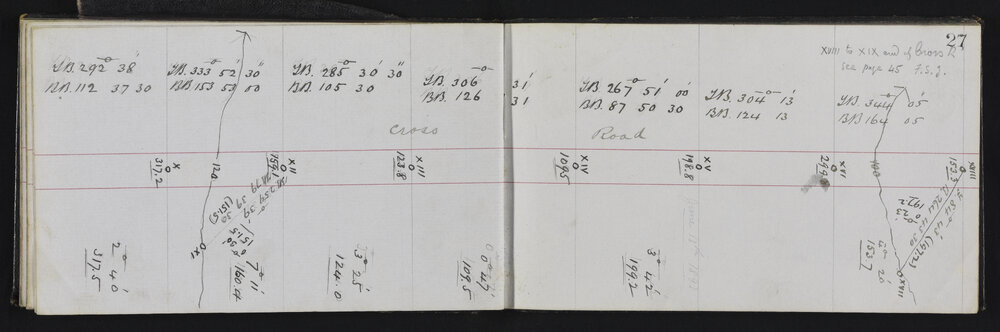 27
XVIII to XIX end of Cross R
See page 45 F.S.J.
F.B. 292° 38'
B.B. 112 37 30
F.B. 333° 52' 30"
B.B. 153 53 00
F.B. 285° 30' 30"
B.B. 105 30
F.B. 306° 31'
B.B. 126 31
F.B. 267° 51' 00
B.B. 87 50 30
F.B. 304° 13'
B.B. 124 13
F.B. 344° 05'
B.B. 164 05
Cross Road
X
317.2
120
XII
159.1
XIII
123.8
XIV
109.5
XV
198.8
XVI
249.
100
XVIII
153.3
(151.5)
151.5
XI
2° 40'
317.5
7° 11'
160.4
3° 25'
124.0
0° 47'
109.5
3° 42'
199.2
0° 23'
197.2
(197.2)
26'
153.7
XVII